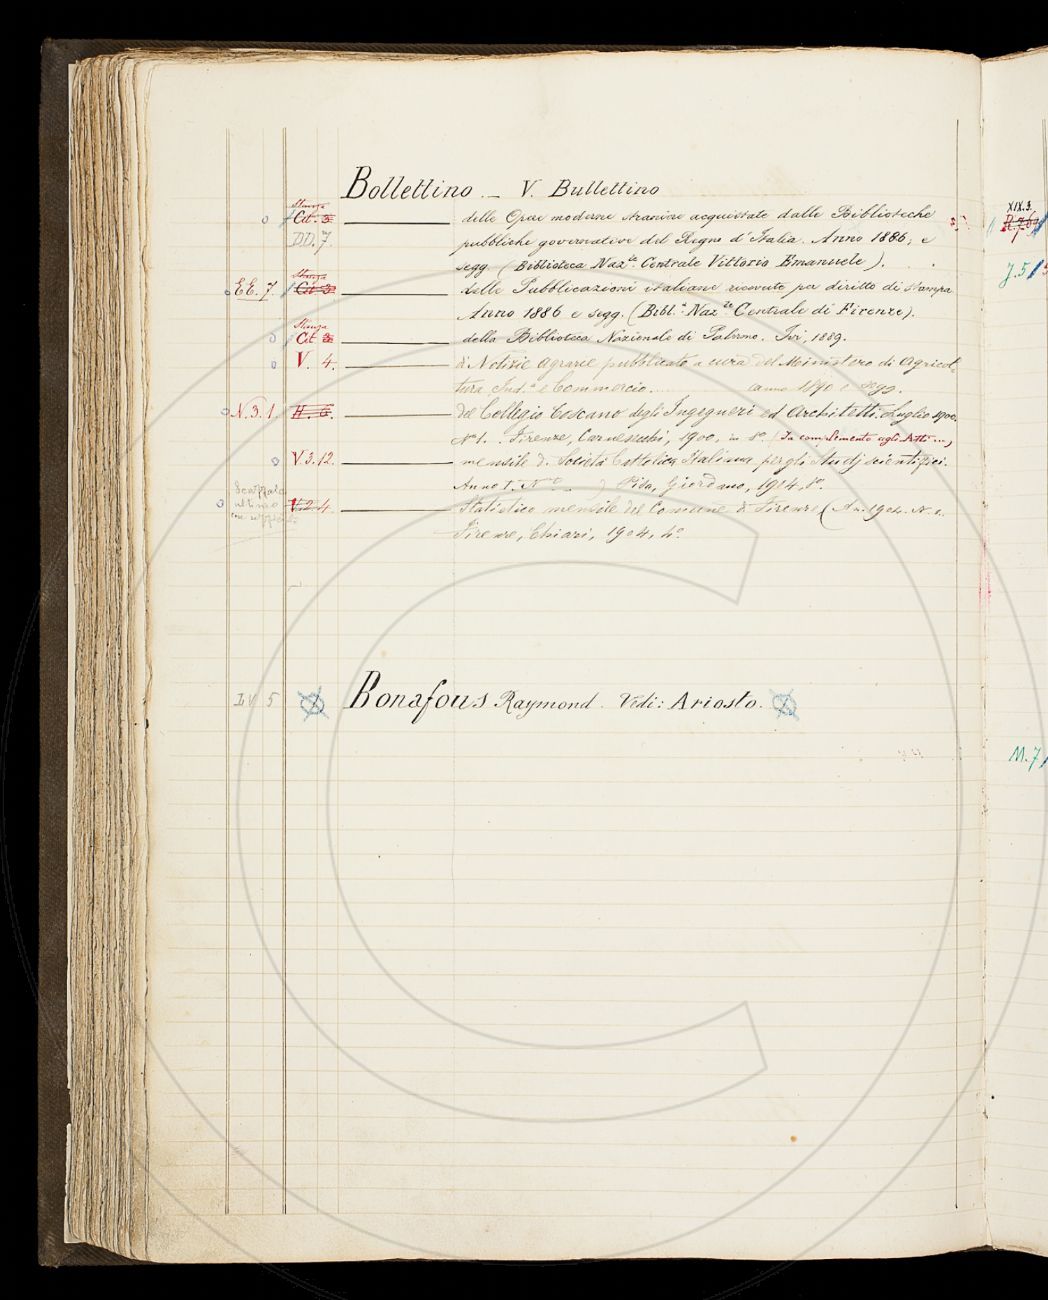 Bollettino — V. Bullettino
Stanza
Cit. 3 delle Opere moderne straniere acquistate dalle Biblioteche
DD. 7. pubbliche governative del Regno d'Italia. Anno 1886, e
segg. (Biblioteca Naz.le Centrale Vittorio Emanuele).
Stanza
EE. 7. Cit. 3 delle Pubblicazioni italiane ricevute per diritto di stampa
Anno 1886 e segg. (Bibl.a Naz.le Centrale di Firenze).
Stanza
Cit. 3 della Biblioteca Nazionale di Palermo. Ivi, 1889.
V. 4. di Notizie agrarie pubblicato a cura del Ministero di Agricol-
tura Ind.a e Commercio. anno 1890 e segg.
N. 3. 1. H. 6. del Collegio Toscano degli Ingegneri ed Architetti. Luglio 1900.
No 1. Firenze, Carnesecchi, 1900, in 8o. (In complemento agli Atti ...)
V. 3. 12. mensile d. Società Cattolica Italiana per gli Studj scientifici.
Anno I. No Pisa, Giordano, 1904, 8o.
ultimo
V. 2. 4. Statistico mensile del Comune di Firenze, (An. 1904. N. 1.
Firenze, Chiari, 1904, 4o
LV 5 Bonafous Raymond. Vedi: Ariosto.
XIX. 3.
J. 5
M. 7